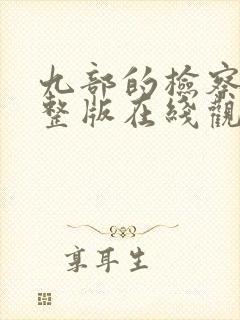 九部的檢察
整版在綫觀
享耳生